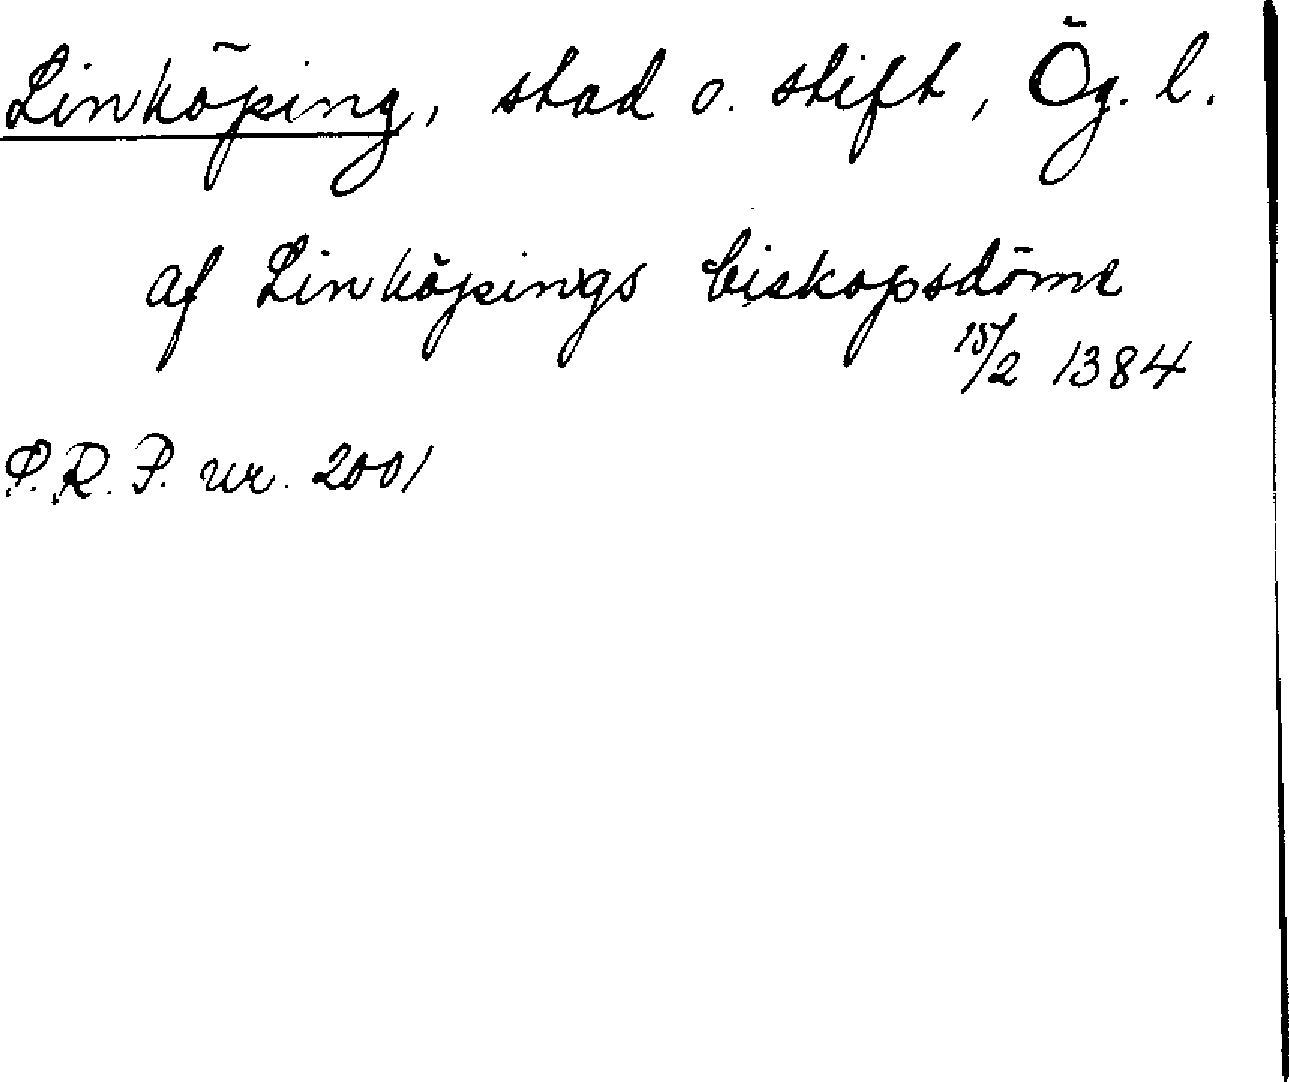 Linköping, stad o. stift, Ög. l.
af Linköpings biskopsdöme
15/2 1384
P.R.P. nr. 2001